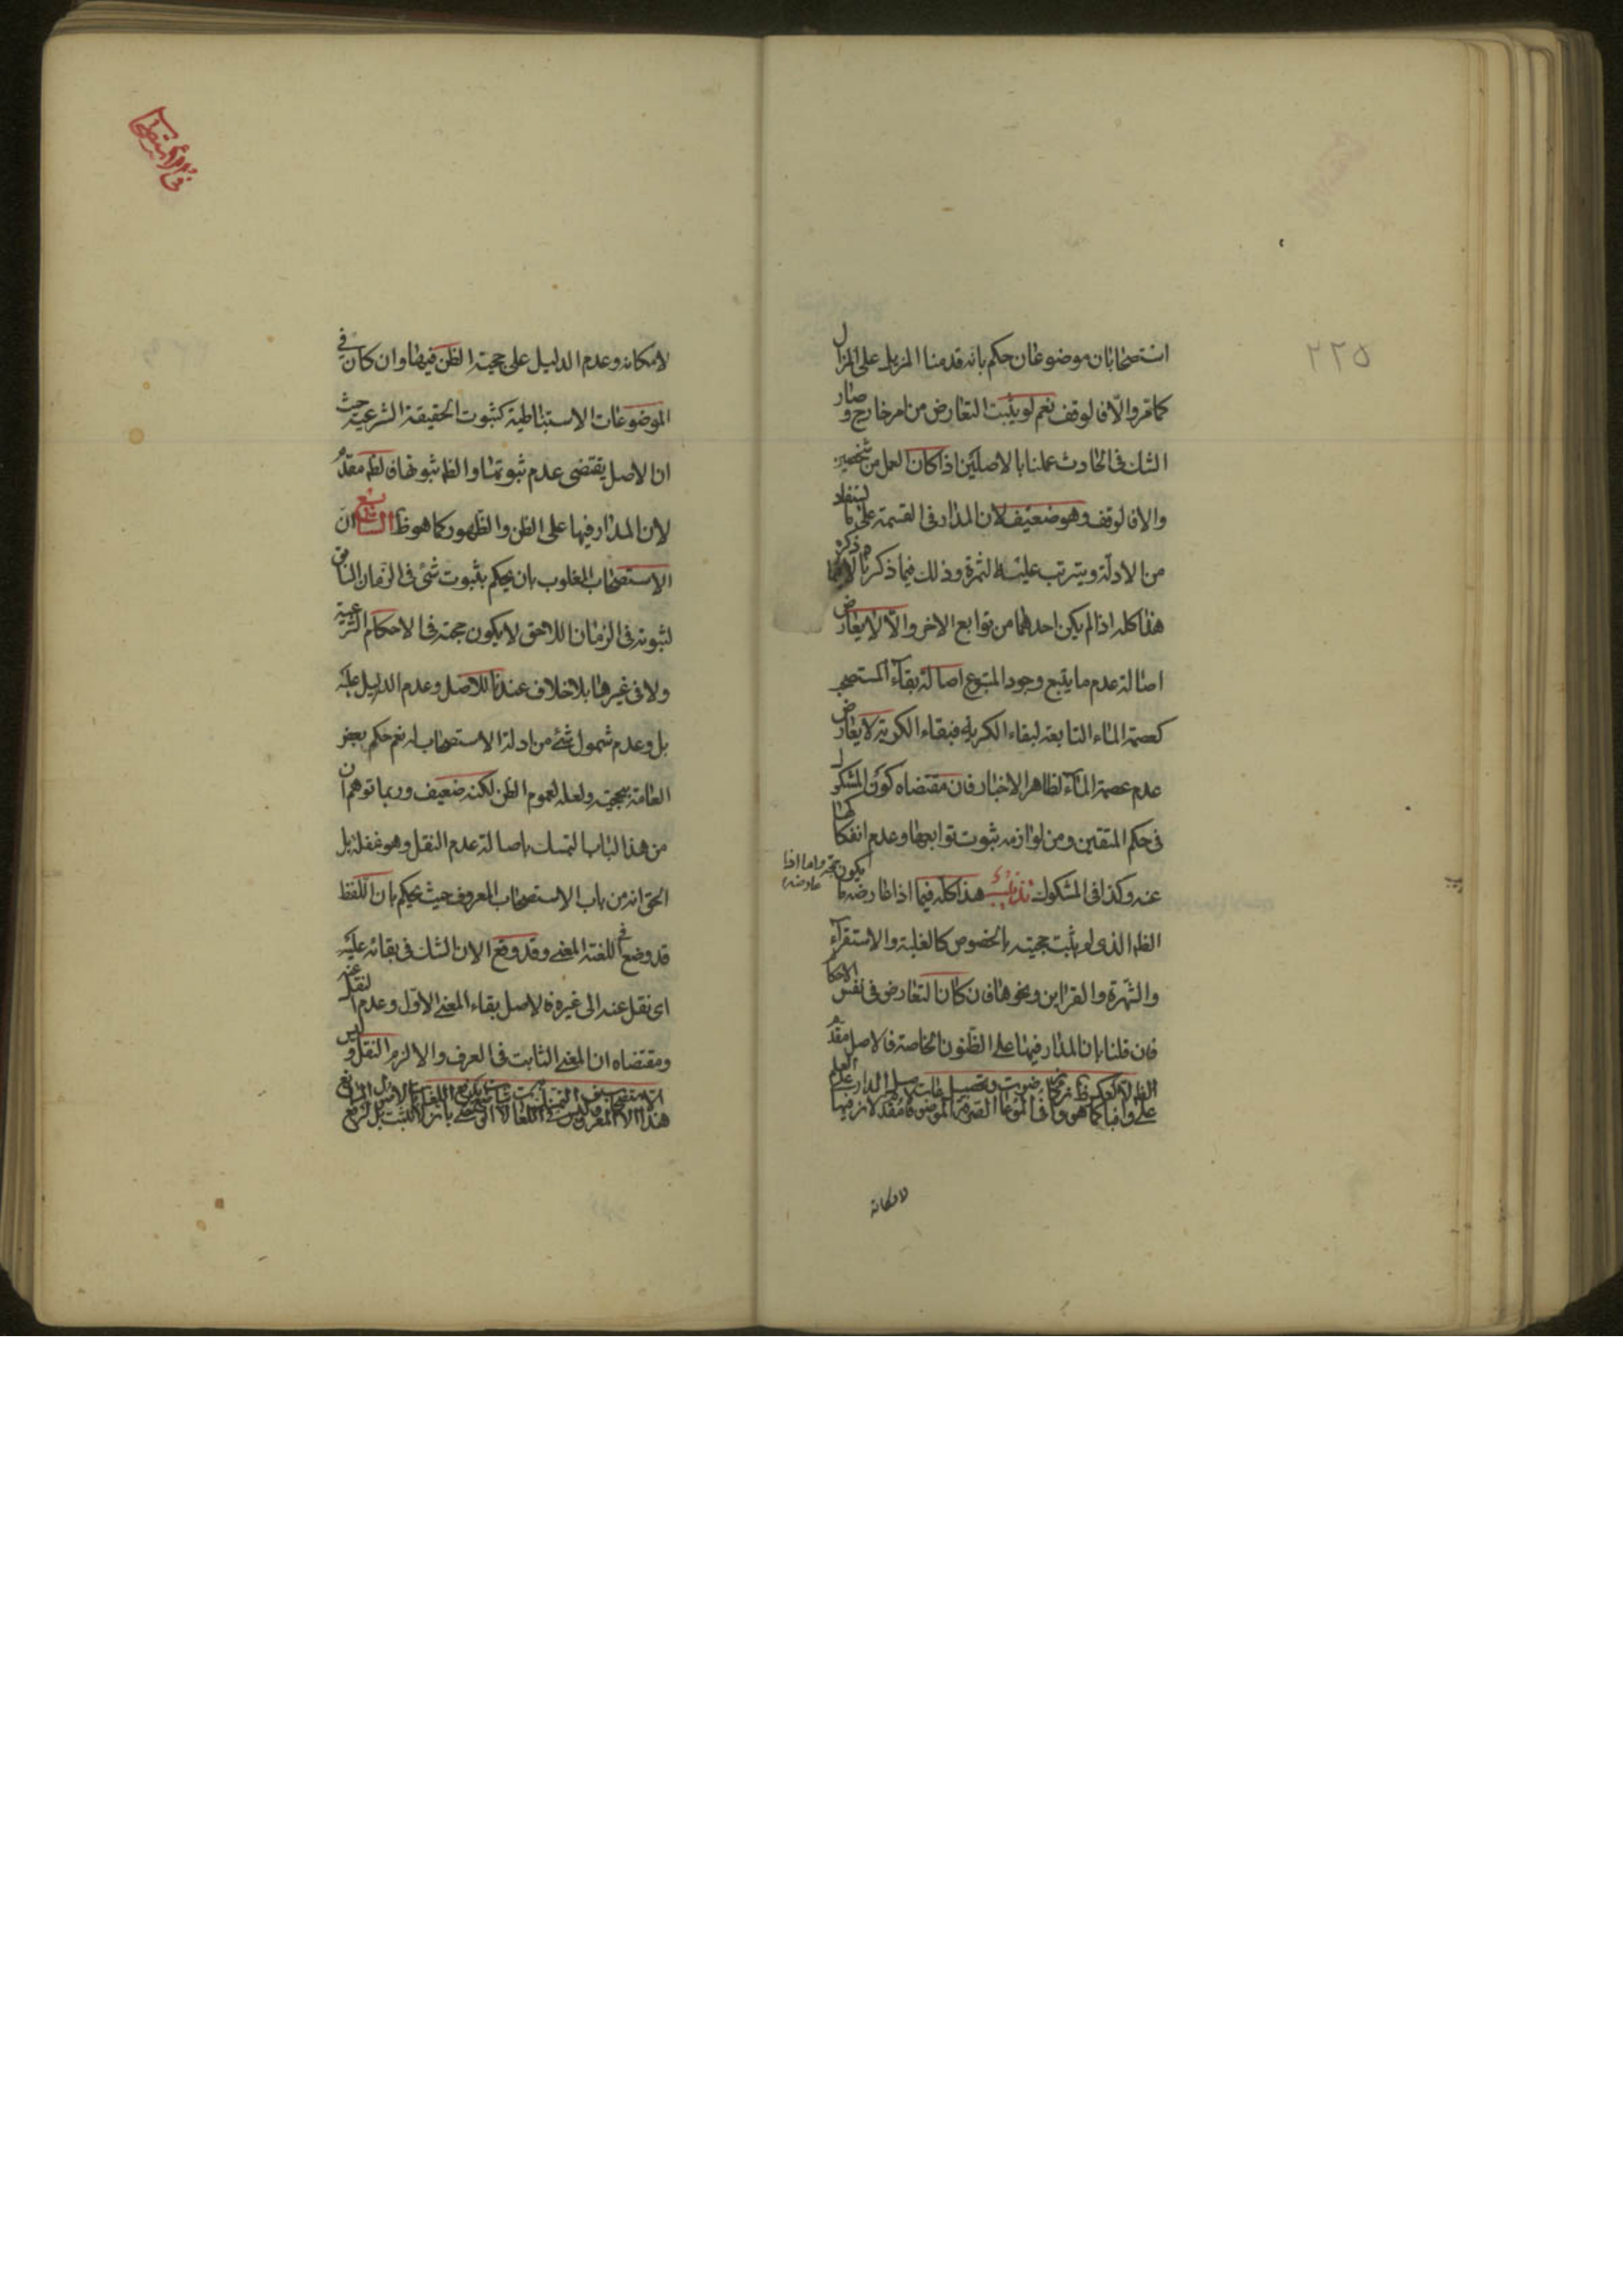 ٢٢٥
استصحابان موضوعان حكم بانه قدمنا المزيل على المزال
كما مر والا فالوقف نعم لو يثبت التعارض من امر خارج و صار
الشك فى الحادث عملنا بالاصلين اذا كان العمل من شخصين
والا فالوقف وهو ضعيف لان المدار فى القسمة على ما يستفاد
من الادلة ويترتب عليه الثمرة وذلك فيما ذكرنا لا ما ذكره
هذا كله اذا لم يكن احدهما من توابع الاخر والا لا يعارض
اصالة عدم ما يتبع وجود المتبوع اصالة بقاء المستصحب
كعصمة الماء التابعة لبقاء الكرية فبقاء الكرية لا يعارض
عدم عصمة الماء لظاهر الاخبار فان مقتضاه كون المشكوك
فى حكم المتقين ومن لوازمه ثبوت توابعها وعدم انفكاكها
عنه وكذا فى المشكوك تذنيب هذا كله فيما اذا عارضه ما يكون حجة واما اذا عارضه
الظن الذى لم يثبت حجيته بالخصوص كالغلبة والاستقراء
والشهرة والقراين ونحوها فان كان التعارض فى نفس الاحكام
فان قلنا بان المدار فيها على الظنون الخاصة فالاصل مقدم
لامكانه
فى الاستصحاب
لامكانه وعدم الدليل على حجية الظن فيها وان كان فى
الموضوعات الاستنباطية كثبوت الحقيقة الشرعية حيث
ان الاصل يقتضى عدم ثبوتها والظ ثبوتها فالظ مقدم
لان المدار فيها على الظن والظهور كما هو ظ التاسع ان
الاستصحاب المغلوب بان يحكم بثبوت شئ فى الزمان السابق
لثبوته فى الزمان اللاحق لا يكون حجة فى الاحكام الشرعية
ولا فى غيرها بلا خلاف عندنا للاصل وعدم الدليل عليه
بل وعدم شمول شئ من ادلة الاستصحاب له نعم حكم بعض
العامة بحجيته ولعله لعموم الظن لكنه ضعيف وربما توهم ان
من هذا الباب التمسك باصالة عدم النقل وهو غفلة بل
الحق انه من باب الاستصحاب المعروف حيث يحكم بان اللفظ
قد وضع فى اللغة المعنى وقد وقع الان الشك فى بقائه عليه
اى نقل عنه الى غيره فالاصل بقاء المعنى الاول وعدم النقل عنه
ومقتضاه ان المعنى الثابت فى العرف والا لزم النقل وليس